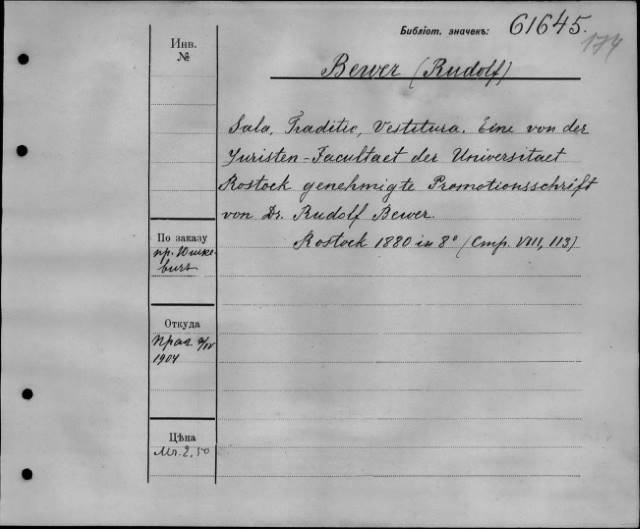 Библіот. значекъ: 61645.
174
Инв.
№
Bewer (Rudolf)
Sala, Traditio, Vestitura. Eine von der
Juristen-Facultaet der Universitaet
Rostock genehmigte Promotionsschrift
von Dr. Rudolf Bewer.
Rostock 1880 in 8° (Стр. VIII, 113)
По заказу
пр.
Откуда
1904
Цѣна
Mr. 2,50